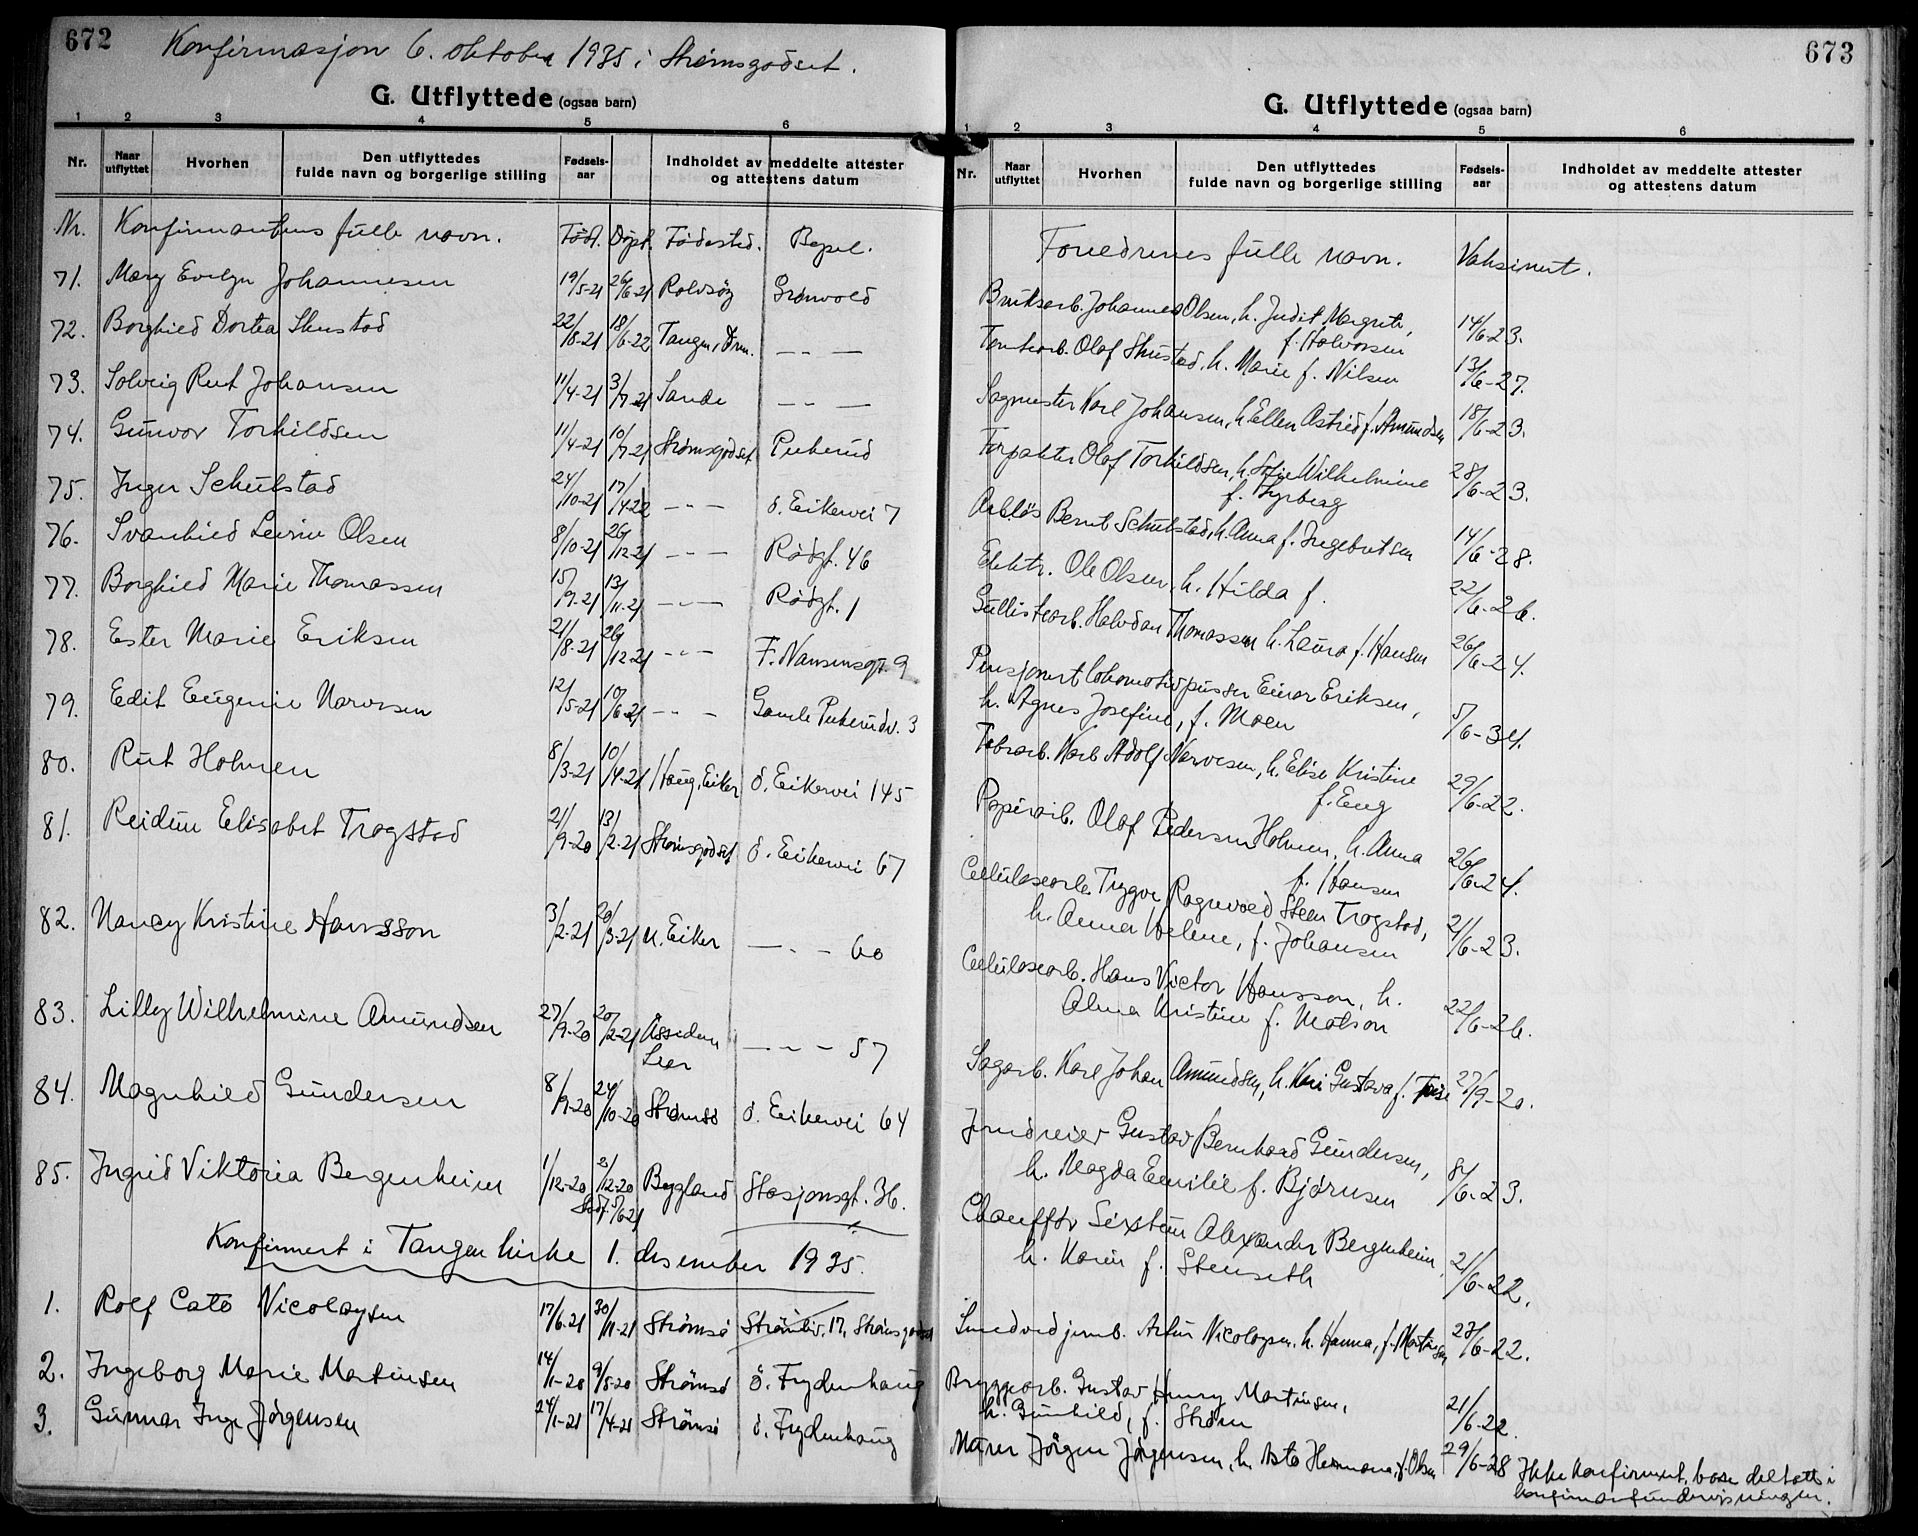 672
Konfirmasjon 6. oktober 1935 i Strømsgodset.
G. Utflyttede (ogsaa barn)
1 2 3 4 5 6
Nr. Naar utflyttet Hvorhen Den utflyttedes fulde navn og borgerlige stilling Fødsels-aar Indholdet av meddelte attester og attestens datum
Nr. Konfirmantens fulle navn. Född. Döpt. Födested. Bopel.
71. Mary Evelyn Johannesen 19/5-21 26/6-21 Rolvsöy Grönvold
72. Borghild Dortea Skustad 22/8-21 18/6-22 Tangen, Drm. — " —
73. Solveig Rut Johansen 11/4-21 3/7-21 Sande — " —
74. Gunvor Torkildsen 11/4-21 10/7-21 Strömsgodset Pukerud
75. Inger Schulstad 24/10-21 17/4-22 — " — ö. Eikervei 7
76. Svanhild Levine Olsen 8/10-21 26/12-21 — " — Rödgt. 46
77. Borghild Marie Thomassen 15/9-21 13/11-21 — " — Rödgt. 1
78. Ester Marie Eriksen 21/8-21 26/12-21 — " — F. Nansensgt. 9
79. Edit Eugenie Narvesen 12/5-21 10/6-21 — " — Gamle Pukerudv. 3
80. Rut Holmen 8/3-21 10/4-21 Haug, Eiker ö. Eikervei 145
81. Reidun Elisabet Trogstad 21/9-20 13/2-21 Strömsgodset ö. Eikervei 67
82. Nancy Kristine Hansson 3/2-21 20/3-21 N. Eiker — " — 60
83. Lilly Wilhelmine Amundsen 27/9-20 20/2-21 Assiden Lier — " — 57
84. Magnhild Gundersen 8/9-20 24/10-20 Strömsö ö. Eikervei 64
85. Ingrid Viktoria Bergenheim 1/12-20 3/12-20 Bygland Stasjonsgt. 36.
Stadf. 5/6-21
Konfirmert i Tangen kirke 1. desember 1935.
1. Rolf Cato Nicolaysen 17/6-21 30/11-21 Strömsö 17, Strömsgodset
2. Ingeborg Marie Martinsen 14/1-20 9/5-20 Strömsö ö. Frydenhaug
3. Gunnar Inge Jörgensen 24/1-21 17/4-21 Strömsö ö. Frydenhaug
673
G. Utflyttede (ogsaa barn)
1 2 3 4 5 6
Nr. Naar utflyttet Hvorhen Den utflyttedes fulde navn og borgerlige stilling Fødsels-aar Indholdet av meddelte attester og attestens datum
Foreldrenes fulle navn. Vaksinert.
Bruksarb. Johannes Olsen, h. Judit Margrete, f. Halvorsen 14/6-23.
Tomtearb. Olaf Skustad, h. Marie f. Nilsen 13/6-27.
Sagmester Karl Johansen, h. Ellen Astrid f. Amundsen 18/6-23.
Forpakter Olaf Torkildsen, h. Sofie Wilhelmine f. Fyrberg 28/6-23.
Arb.lös Bernt Schulstad, h. Anna f. Ingebretsen 14/6-28.
Elektr. Ole Olsen, h. Hilda f. 22/6-26.
Gullistearb. Halvdan Thomassen h. Laura f. Hansen 26/6-24.
Pensjonert lokomotivpusser Einar Eriksen,
h. Agnes Josefine, f. Moen 5/6-34.
Fabrarb. Karl Adolf Narvesen, h. Elise Kristine
f. Eng 29/6-22.
Papirarb. Olaf Pedersen Holmen, h. Anna
f. Hansen 26/6-24.
Cellulosearb. Trygve Ragnvald Steen Trogstad,
h. Anna Helene, f. Johansen 21/6-23.
Cellulosearb. Hans Victor Hansson, h.
Alma Kristine f. Matson 22/6-26.
Sagarb. Karl Johan Amundsen, h. Kari Gustava f. 27/9-20.
Gustav Bernhard Gundersen,
h. Magda Emilie f. Björnsen 8/6-23.
Chaufför Sixten Alexander Bergenheim,
h. Karin f. Stenseth 21/6-22.
Artur Nicolaysen, h. Hanna, f. Martinsen 23/6-22.
Bryggearb. Gustav Henry Martinsen,
h. Gunhild, f. Ström 21/6-22.
Murer Jörgen Jörgensen, h. Asta Hermana, f. Olsen 29/6-28 Ikke konfirmert, bare deltatt i
konfirmantundervisningen.